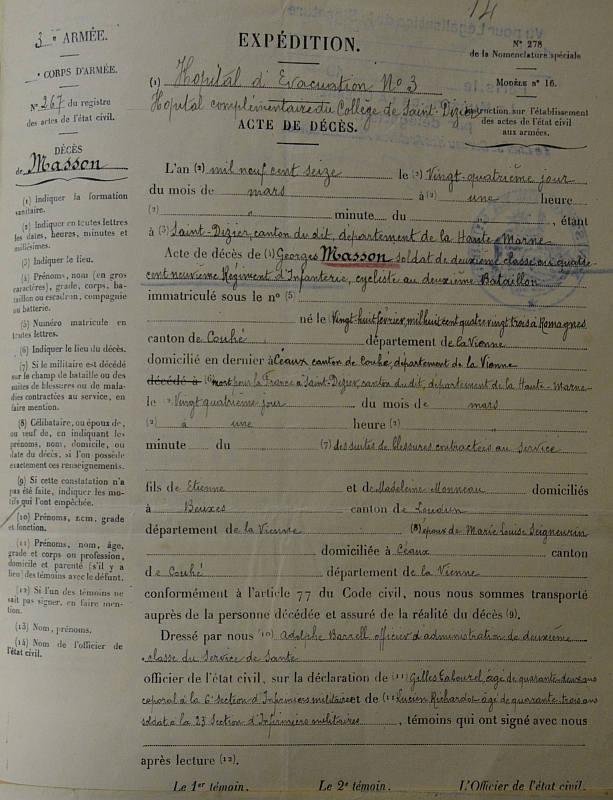 14
3me ARMÉE.
CORPS D'ARMÉE.
N° 267 du registre
des actes de l'état civil.
DÉCÈS
de Masson
(1) Indiquer la formation
sanitaire.
(2) Indiquer en toutes lettres
les dates, heures, minutes et
millésimes.
(3) Indiquer le lieu.
(4) Prénoms, nom (en gros
caractères), grade, corps, ba-
taillon ou escadron, compagnie
ou batterie.
(5) Numéro matricule en
toutes lettres.
(6) Indiquer le lieu du décès.
(7) Si le militaire est décédé
sur le champ de bataille ou des
suites de blessures ou de mala-
dies contractées au service, en
faire mention.
(8) Célibataire, ou époux de,
ou veuf de, en indiquant les
prénoms, nom, domicile, ou
date du décès, si l'on possède
exactement ces renseignements.
(9) Si cette constatation n'a
pas été faite, indiquer les mo-
tifs qui l'ont empêchée.
(10) Prénoms, nom, grade
et fonction.
(11) Prénoms, nom, âge,
grade et corps ou profession,
domicile et parenté (s'il y a
lieu) des témoins avec le défunt.
(12) Si l'un des témoins ne
sait pas signer, en faire men-
tion.
(13) Nom, prénoms.
(14) Nom de l'officier de
l'état civil.
EXPÉDITION.
N° 278
de la Nomenclature spéciale
MODÈLE N° 16.
Instruction sur l'établissement
des actes de l'état civil
aux armées.
(1) Hopital d'Evacuation N° 3
Hopital complementaire du Collège de Saint-Dizier
ACTE DE DÉCÈS.
L'an (2) mil neuf cent seize le (2) Vingt-quatrième jour
du mois de mars à (2) une heure
(2) " minute du " , étant
à (3) Saint-Dizier, canton du dit, département de la Haute-Marne
Acte de décès de (4) Georges Masson soldat de deuxième classe au quatre
cent neuvième Régiment d'Infanterie, cycliste au deuxième Bataillon
immatriculé sous le n° (5)
né le Vingt huit février, mil huit cent quatre vingt trois à Romagnes
canton de Couhé département de la Vienne
domicilié en dernier à Céaux canton de Couhé, département de la Vienne
décédé à (6) mort pour la France à Saint-Dizier, canton du dit, département de la Haute-Marne
le (2) Vingt quatrième jour du mois de mars
(2) à une heure (2) "
minute du " (7) des suites de blessures contractées au service
fils de Etienne et de Madeleine Monneau domiciliés
à Beuxes canton de Loudun
département de la Vienne (8) époux de Marie Louise Seigneurin
domiciliée à Céaux canton
de Couhé département de la Vienne
conformément à l'article 77 du Code civil, nous nous sommes transporté
auprès de la personne décédée et assuré de la réalité du décès (9).
Dressé par nous (10) Adolphe officier d'administration de deuxième
classe du Service de Santé
officier de l'état civil, sur la déclaration de (11) Gilles âgé de quarante deux ans
caporal à la 6e section d'Infirmiers militaires et de (11) Lucien Richardot âgé de quarante trois ans
soldat à la 23e Section d'Infirmiers militaires , témoins qui ont signé avec nous
après lecture (12).
Le 1er témoin. Le 2e témoin. L'Officier de l'état civil.